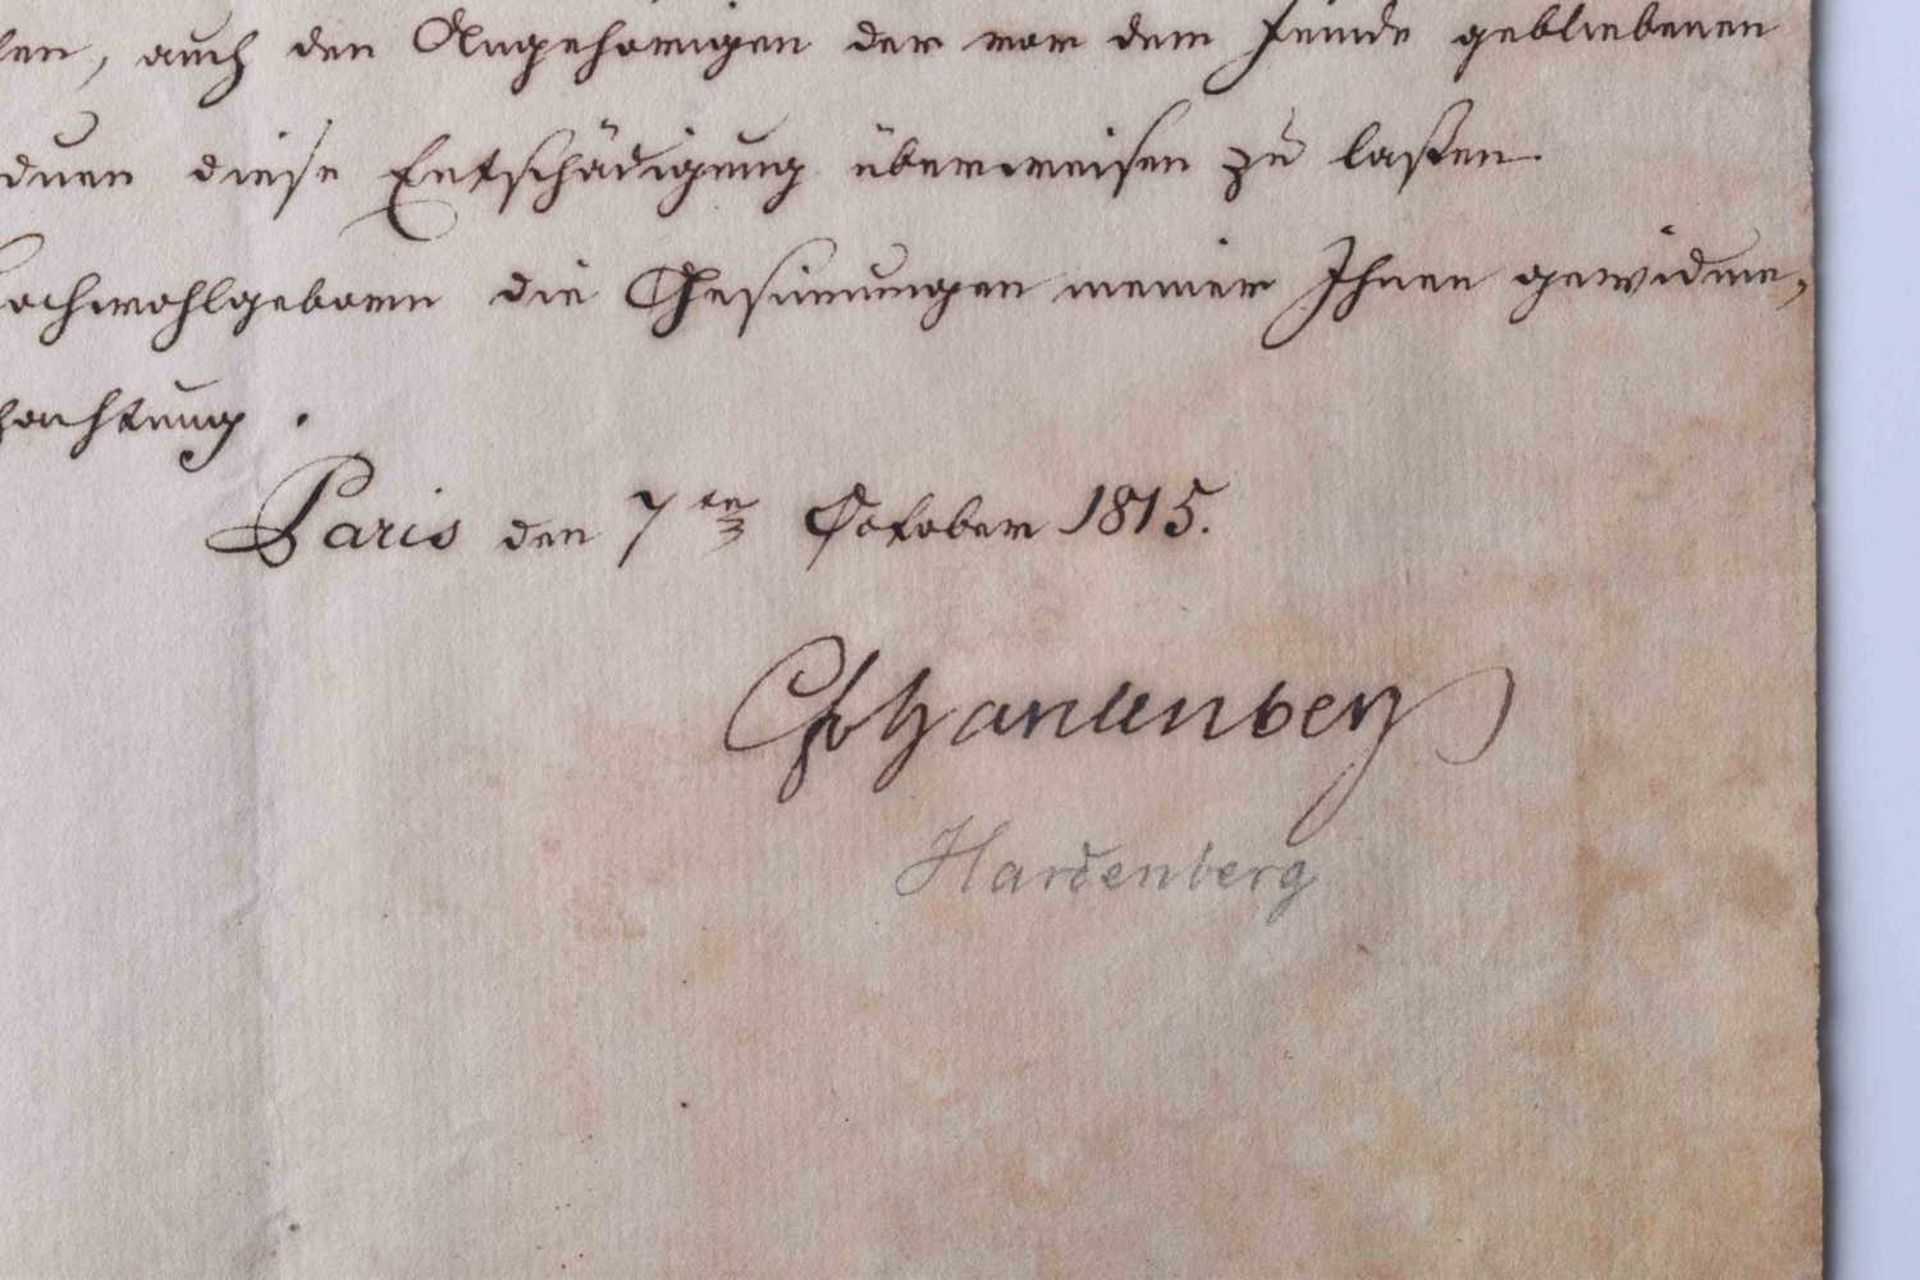 len, auch den Angehörigen der vor dem Feinde gebliebenen
duen diese Entschädigung überweisen zu laßen.
ochwohlgeborn die Gesinnungen meiner Ihnen gewidme,
hachtung.
Paris den 7ten October 1815.
CfvHardenberg
Hardenberg